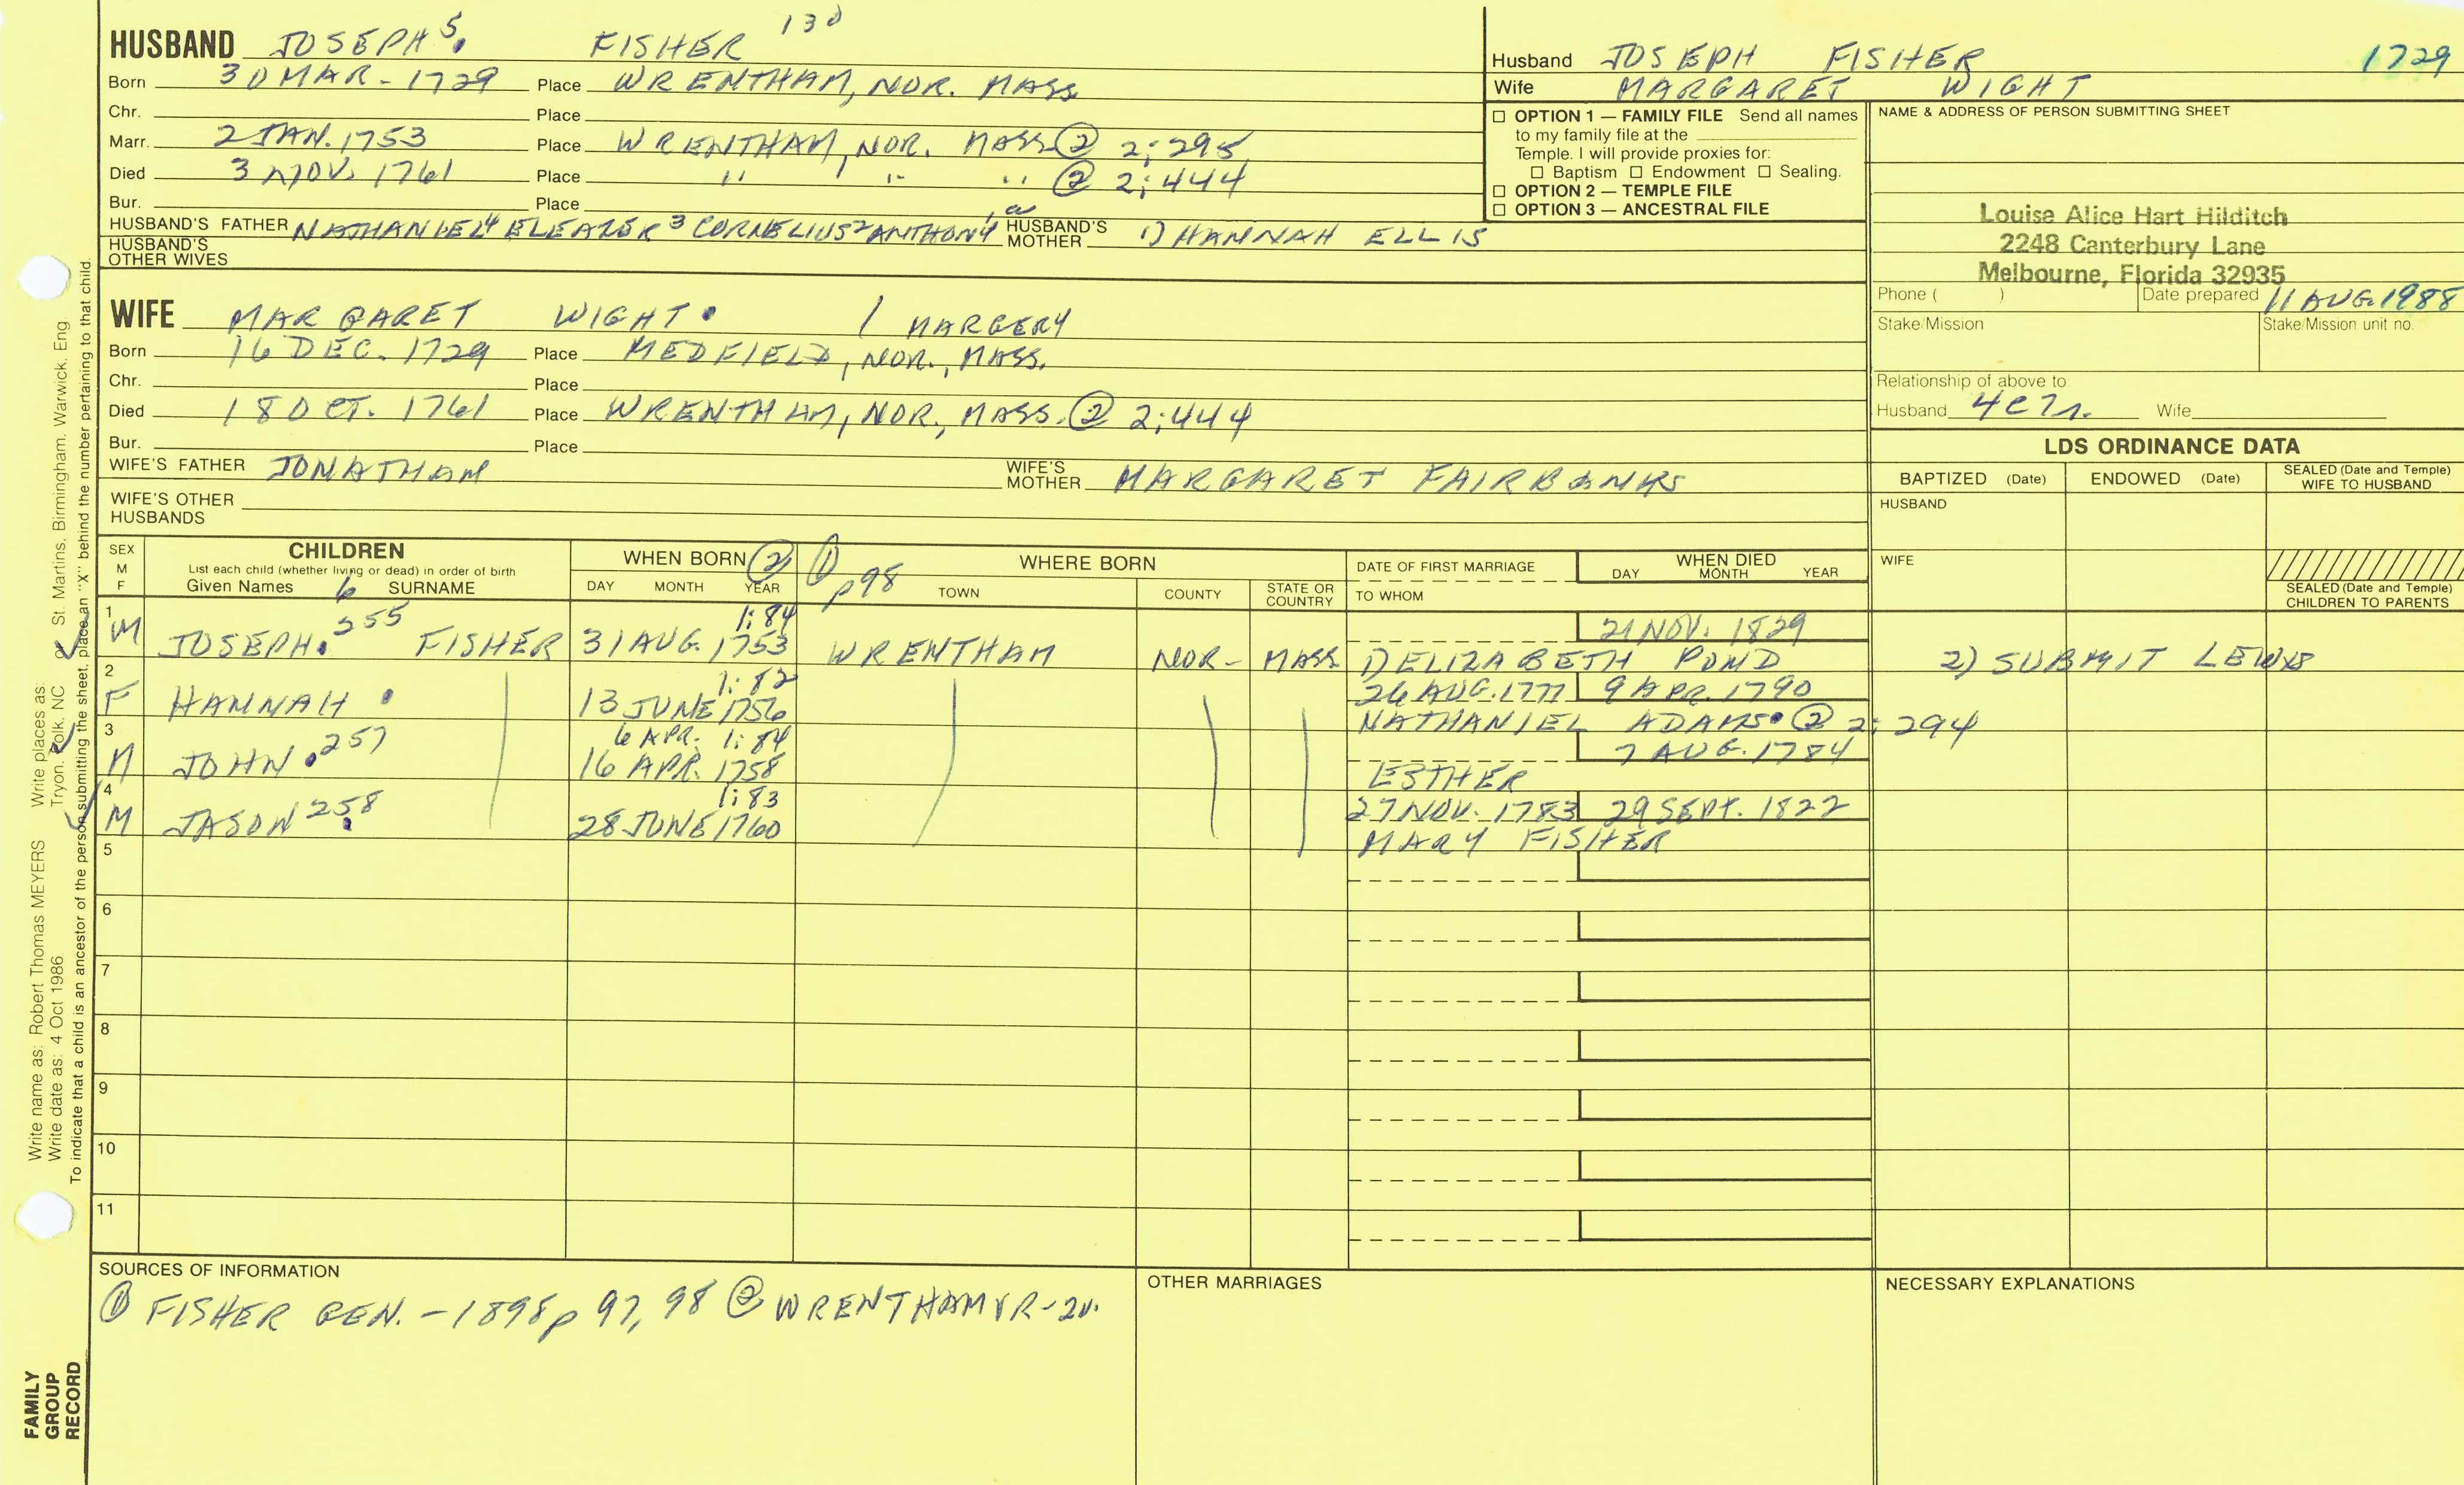 HUSBAND JOSEPH 5. FISHER 130
Born 30 MAR - 1729 Place WRENTHAM, NOR. MASS
Chr. Place
Marr. 2 JAN. 1753 Place WRENTHAM, NOR. MASS ② 2:295
Died 3 NOV. 1761 Place " " " ② 2:444
Bur. Place
HUSBAND'S FATHER NATHANIEL4 ELEAZER3 CORNELIUS2 ANTHONY1 HUSBAND'S MOTHER 1) HANNAH ELLIS
HUSBAND'S OTHER WIVES
WIFE MARGARET WIGHT / MARGERY
Born 16 DEC. 1729 Place MEDFIELD, NOR., MASS.
Chr. Place
Died 18 OCT. 1761 Place WRENTHAM, NOR., MASS. ② 2:444
Bur. Place
WIFE'S FATHER JONATHAM WIFE'S MOTHER MARGARET FAIRBANKS
WIFE'S OTHER HUSBANDS
Husband JOSEPH FISHER 1729
Wife MARGARET WIGHT
☐ OPTION 1 — FAMILY FILE Send all names
to my family file at the
Temple. I will provide proxies for:
☐ Baptism ☐ Endowment ☐ Sealing.
☐ OPTION 2 — TEMPLE FILE
☐ OPTION 3 — ANCESTRAL FILE
NAME & ADDRESS OF PERSON SUBMITTING SHEET
Louise Alice Hart Hilditch
2248 Canterbury Lane
Melbourne, Florida 32935
Phone ( ) Date prepared 11 AUG. 1988
Stake/Mission Stake/Mission unit no.
Relationship of above to:
Husband Wife
LDS ORDINANCE DATA
BAPTIZED (Date) ENDOWED (Date) SEALED (Date and Temple) WIFE TO HUSBAND
HUSBAND
WIFE
SEALED (Date and Temple) CHILDREN TO PARENTS
SEX M F CHILDREN WHEN BORN ② ① p98 WHERE BORN DATE OF FIRST MARRIAGE WHEN DIED
List each child (whether living or dead) in order of birth
Given Names 6 SURNAME DAY MONTH YEAR TOWN COUNTY STATE OR COUNTRY TO WHOM DAY MONTH YEAR
1 1:84 21 NOV. 1829
M JOSEPH. 255 FISHER 31 AUG. 1753 WRENTHAM NOR- MASS 1) ELIZABETH POND 2) SUBMIT LEWIS
2 1:82 26 AUG. 1777 9 APR. 1790
F HANNAH 13 JUNE 1756 NATHANIEL ADAMS ② 2:294
3 6 APR. 1:84 7 AUG. 1784
M JOHN 257 16 APR. 1758 ESTHER
4 1:83 27 NOV. 1783 29 SEPT. 1822
M JASON 258 28 JUNE 1760 MARY FISHER
5
6
7
8
9
10
11
SOURCES OF INFORMATION
① FISHER GEN. - 1898 p 97, 98 ② WRENTHAM VR - 2v.
OTHER MARRIAGES
NECESSARY EXPLANATIONS
Write name as: Robert Thomas MEYERS Write places as: St. Martins, Birmingham, Warwick, Eng.
Write date as: 4 Oct 1986 Tryon, Polk, NC
To indicate that a child is an ancestor of the person submitting the sheet, place an "X" behind the number pertaining to that child.
FAMILY
GROUP
RECORD